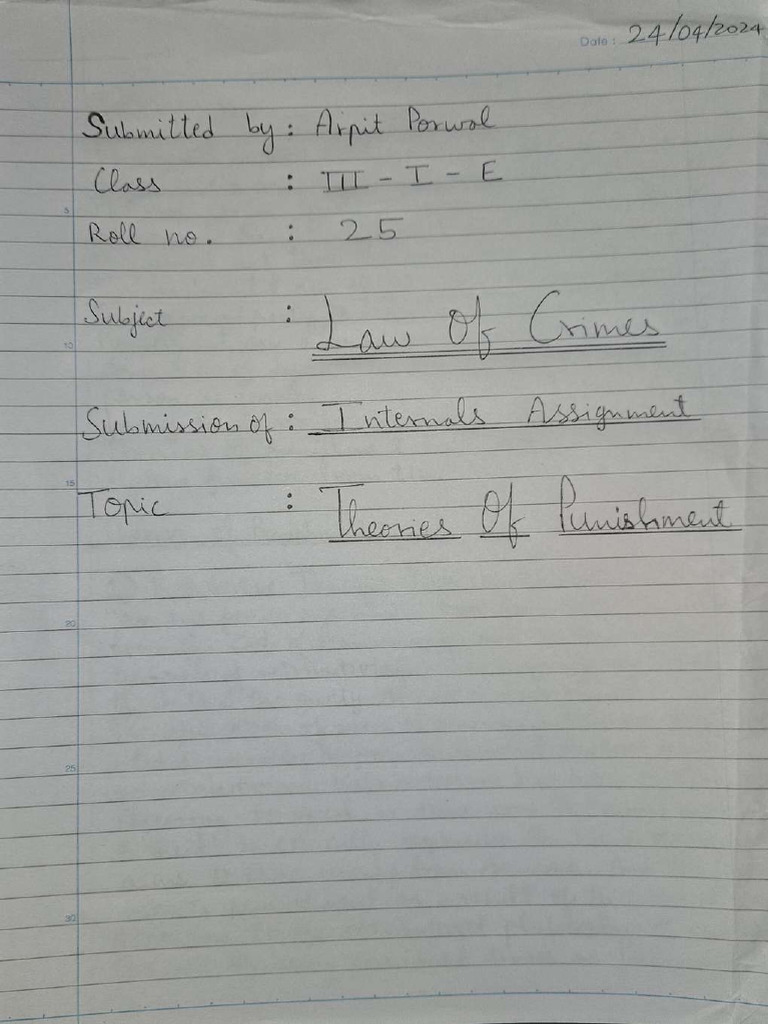 Date : 24/04/2024
Submitted by : Arpit Porwal
Class : III - I - E
5
Roll no. : 25
Subject : Law Of Crimes
10
Submission of : Internals Assignment
15
Topic : Theories Of Punishment
20
25
30